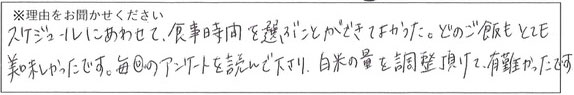 ※理由をお聞かせください
スケジュールにあわせて、食事時間を選ぶことができてよかった。どのご飯もとても
美味しかったです。毎回のアンケートを読んで下さり、白米の量を調整頂けて、有難かったです